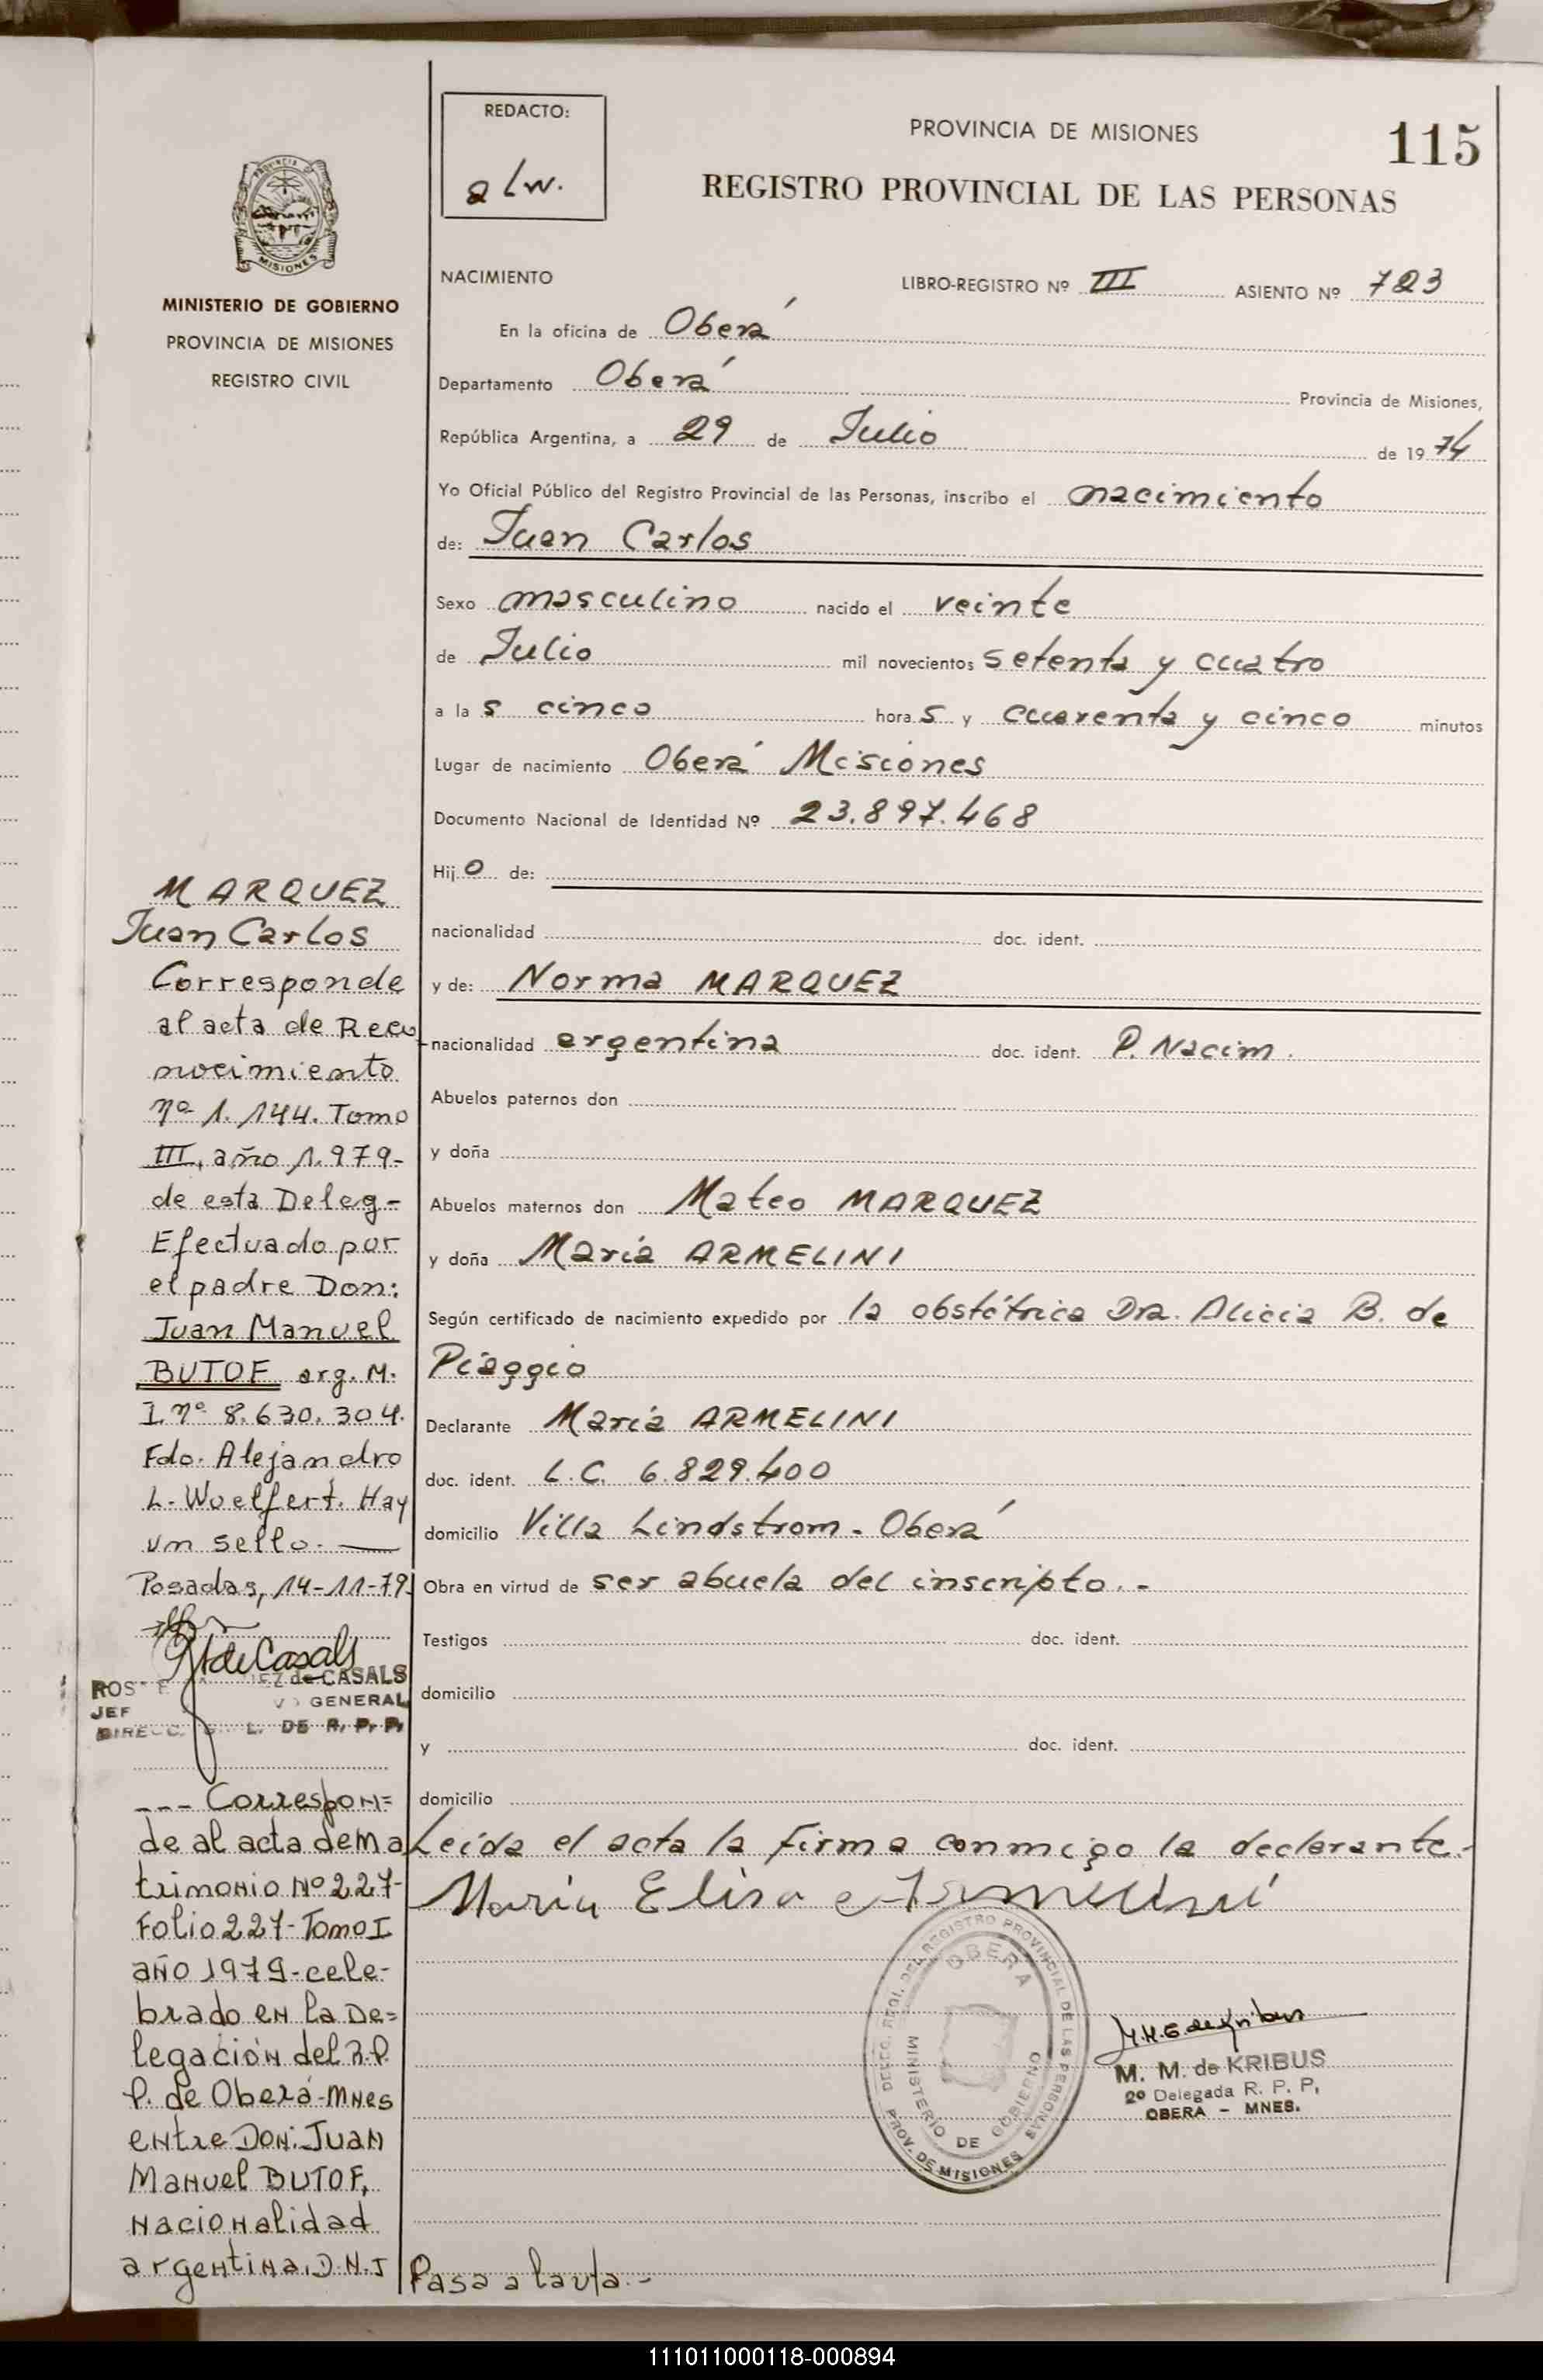 REDACTO:
alw.
PROVINCIA DE MISIONES
115
REGISTRO PROVINCIAL DE LAS PERSONAS
PROVINCIA
MISIONES
MINISTERIO DE GOBIERNO
PROVINCIA DE MISIONES
REGISTRO CIVIL
NACIMIENTO LIBRO-REGISTRO Nº III ASIENTO Nº 723
En la oficina de Oberá
Departamento Oberá Provincia de Misiones,
República Argentina, a 29 de Julio de 1974
Yo Oficial Público del Registro Provincial de las Personas, inscribo el nacimiento
de: Juan Carlos
Sexo masculino nacido el veinte
de Julio mil novecientos setenta y cuatro
a las cinco horas y cuarenta y cinco minutos
Lugar de nacimiento Oberá Misiones
Documento Nacional de Identidad Nº 23.897.468
Hijo de:
nacionalidad doc. ident.
y de: Norma MARQUEZ
nacionalidad argentina doc. ident. P. Nacim.
Abuelos paternos don
y doña
Abuelos maternos don Mateo MARQUEZ
y doña María ARMELINI
Según certificado de nacimiento expedido por la obstétrica Dra. Alicia B. de
Piaggio
Declarante María ARMELINI
doc. ident. L.C. 6.829.400
domicilio Villa Lindstrom - Oberá
Obra en virtud de ser abuela del inscripto. -
Testigos doc. ident.
domicilio
y doc. ident.
domicilio
Leída el acta la firma conmigo la declarante.-
María Elisa Armelini
DELEG. REGI. DEL REGISTRO PROVINCIAL DE LAS PERSONAS
OBERA
MINISTERIO DE GOBIERNO
PROV. DE MISIONES
M. M. de KRIBUS
2º Delegada R. P. P,
OBERA - MNES.
Pasa a la vta.-
MARQUEZ
Juan Carlos
Corresponde
al acta de Reco
nocimiento
nº 1.144. Tomo
III, año 1.979-
de esta Deleg-
Efectuado por
el padre Don:
Juan Manuel
BUTOF arg. M.
I. nº 8.630.304.
Fdo. Alejandro
L. Woelfert. Hay
un sello.
Posadas, 14-11-79
de Casals
EZ de CASALS
JEF GENERAL
DIRECC. L. DE R. P. P.
--- Correspon=
de al acta de ma
trimonio Nº 227-
Folio 227-Tomo I
año 1979-cele-
brado en la De=
legación del R.P.
P. de Oberá-Mnes
entre Don: Juan
Manuel BUTOF,
nacionalidad
argentina, D.N.I
111011000118-000894